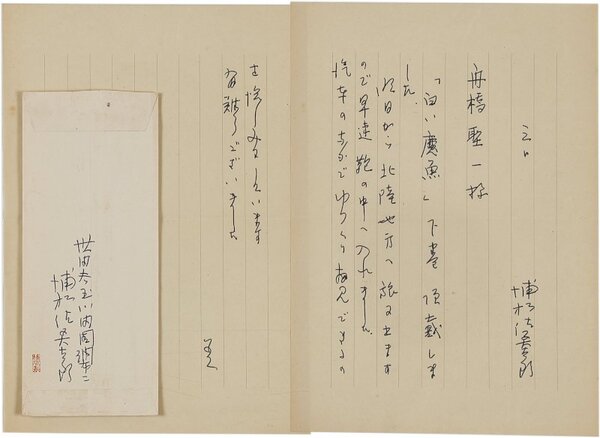 三日
浦松佐美太郎
舟橋聖一様
「白い魔魚」下巻 頂戴しま
した。
明日から北陸地方へ旅に出ます
ので早速鞄の中へ入れました。
汽車の中でゆっくり拝見できるの
を愉しみにしています
有難うございました
世田谷玉川田園調布二
浦松佐美太郎